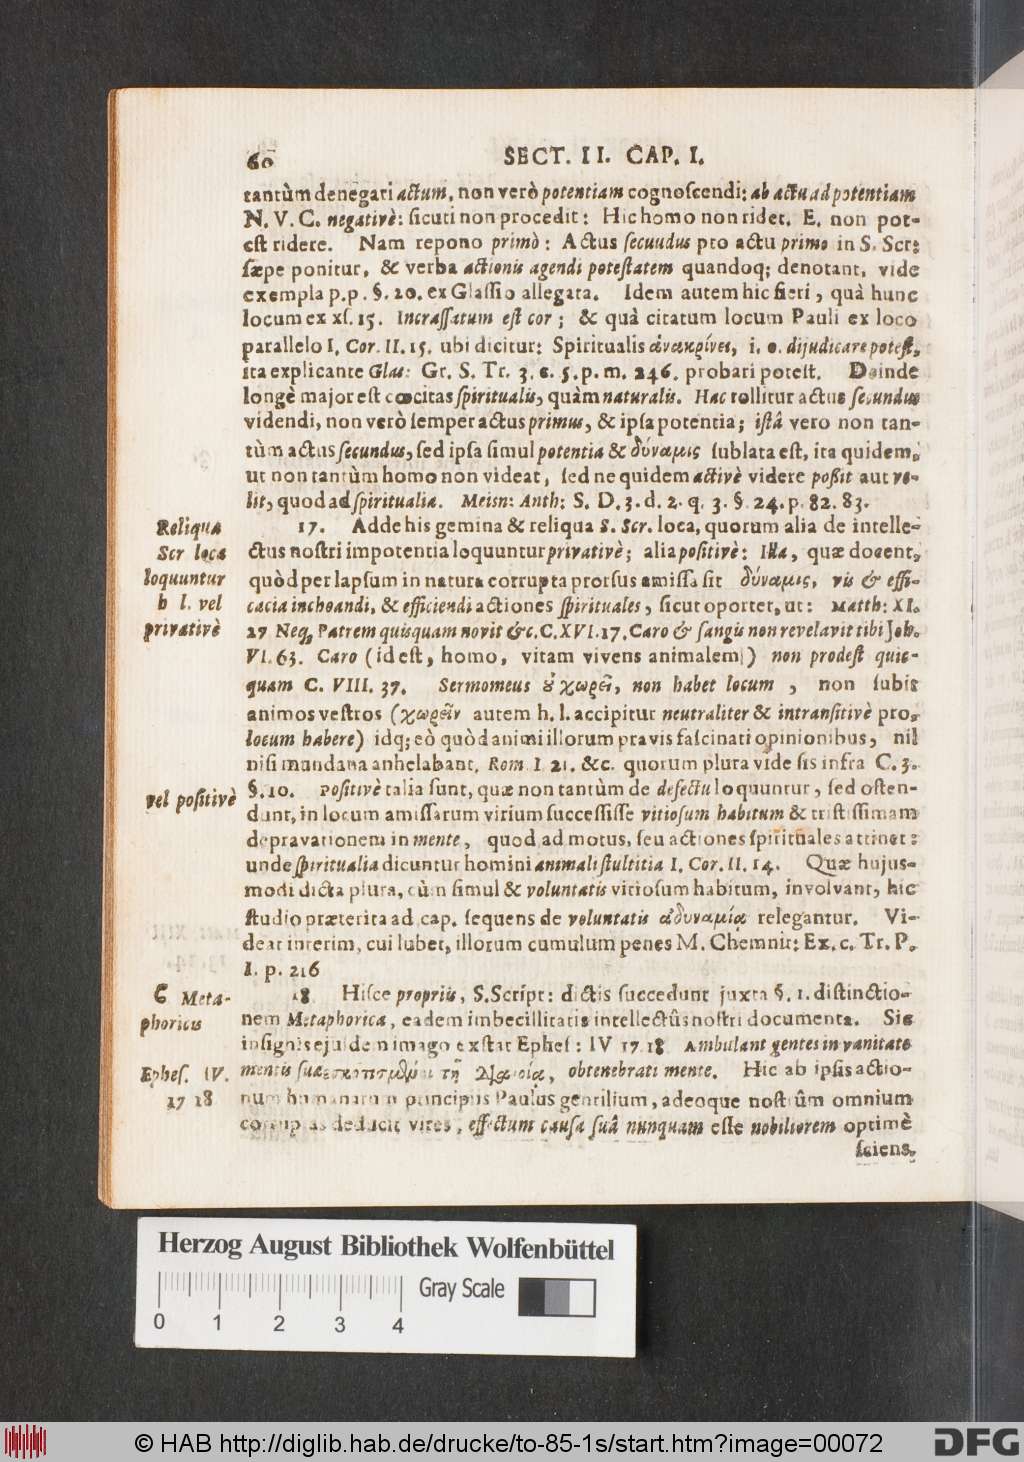 60 SECT. II. CAP. I.
tantùm denegari actum, non verò potentiam cognoscendi: ab actu ad potentiam
N. V. C. negativè: sicuti non procedit: Hic homo non ridet. E. non pot-
est ridere. Nam repono primò: Actus secundus pro actu primo in S. Scr:
sæpe ponitur, & verba actionis agendi potestatem quandoq; denotant, vide
exempla p.p. §. 10. ex Glassio allegata. Idem autem hic fieri, quà hunc
locum ex xſ. 15. Incrassatum est cor; & quà citatum locum Pauli ex loco
parallelo I. Cor. II. 15. ubi dicitur: Spiritualis ἀνακρίνει, i. e. dijudicare potest,
ita explicante Glas: Gr. S. Tr. 3. c. 5. p. m. 246. probari potest. Deinde
longè major est cœcitas spiritualis, quàm naturalis. Hac tollitur actus secundus
videndi, non verò semper actus primus, & ipsa potentia; istâ vero non tan-
tùm actus secundus, sed ipsa simul potentia & δύναμις sublata est, ita quidem,
ut non tantùm homo non videat, sed ne quidem activè videre possit aut ve-
lit, quod ad spiritualia. Meisn: Anth: S. D. 3. d. 2. q. 3. §. 24. p. 82. 83.
Reliqua
Scr loca
loquuntur
h l. vel
privativè
17. Adde his gemina & reliqua S. Scr. loca, quorum alia de intelle-
ctus nostri impotentia loquuntur privativè; alia positivè: Illa, quæ docent,
quòd per lapsum in natura corrupta prorsus amissa sit δύναμις, vis & effi-
cacia inchoandi, & efficiendi actiones spirituales, sicut oportet, ut: Matth: XI.
27 Neq; Patrem quisquam novit &c. C. XVI. 17. Caro & sangis non revelavit tibi Joh.
VI. 63. Caro (id est, homo, vitam vivens animalem) non prodest quic-
quam C. VIII. 37. Sermo meus ȣ χωρεῖ, non habet locum, non subit
animos vestros (χωρεῖν autem h. l. accipitur neutraliter & intransitivè pro,
locum habere) idq; eò quòd animi illorum pravis fascinati opinionibus, nil
nisi mundana anhelabant. Rom I 21. &c. quorum plura vide sis infra C. 3.
vel positivè
§. 10. Positivè talia sunt, quæ non tantùm de defectu loquuntur, sed osten-
dunt, in locum amissarum virium successisse vitiosum habitum & tristissimam
depravationem in mente, quod ad motus, seu actiones spirituales attinet:
unde spiritualia dicuntur homini animali stultitia I. Cor. II. 14. Quæ hujus-
modi dicta plura, cùm simul & voluntatis vitiosum habitum, involvant, hic
studio præterita ad cap. sequens de voluntatis ἀδυναμίᾳ relegantur. Vi-
deat interim, cui lubet, illorum cumulum penes M. Chemnit: Ex. c. Tr. P.
I. p. 216
C Meta-
phoricis
18 Hisce propriis, S. Script: dictis succedunt juxta §. 1. distinctio-
nem Metaphorica, eadem imbecillitatis intellectûs nostri documenta. Sic
insignis ejusdem imago exstat Ephes: IV 17 18 Ambulant gentes in vanitate
Ephes. IV.
17 18
mentis suæ ἐσκοτισμένοι τῇ διανοίᾳ, obtenebrati mente. Hic ab ipsis actio-
num humanarum principiis Paulus gentilium, adeoque nostrûm omnium
corruptas deducit vires, effectum causa suâ nunquam esse nobiliorem optimè
sciens,
Herzog August Bibliothek Wolfenbüttel
Gray Scale
0 1 2 3 4
© HAB http://diglib.hab.de/drucke/to-85-1s/start.htm?image=00072
DFG